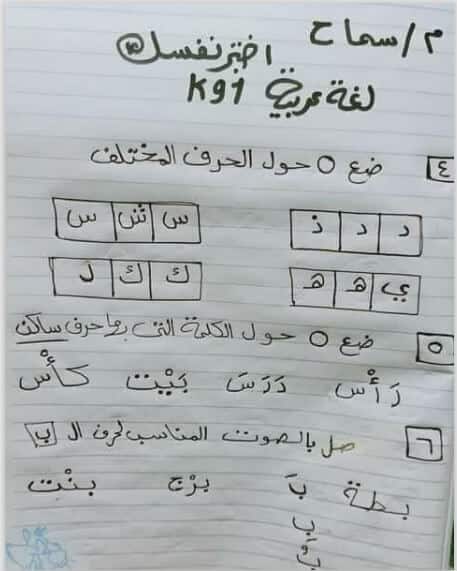 م/سماح
اختبر نفسك ③
لغة عربية K91
٤ ضع O حول الحرف المختلف
د د ذ   س ش س
ي ه ه   ك ك ل
٥ ضع O حول الكلمة التى بها حرف ساكن
رَأْس دَرَسَ بَيْت كَأْس
٦ صل بالصوت المناسب لحرف ال ب
بطة بَ برْج بنْت
بِ
بُ